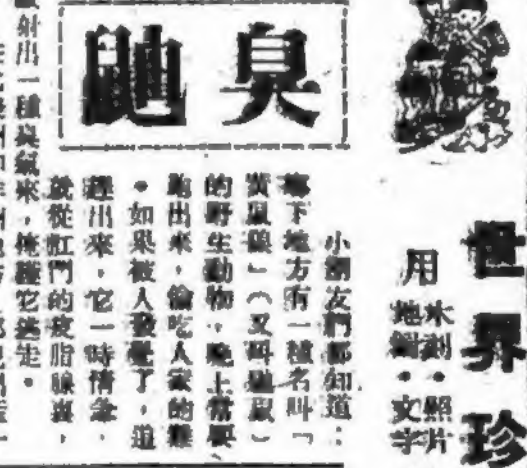 世界珍
用木刻·照片
地網·文字
臭鼬
小朋友們都知道：
鄉下地方有一種名叫「
黃鼠狼」（又叫鼬鼠）
的野生動物，晚上常要
跑出來，偷吃人家的雞
。如果被人發覺了，追
趕出來，它一時情急，
就從肛門的皮脂腺裏，
射出一種臭氣來，掩護它逃走。